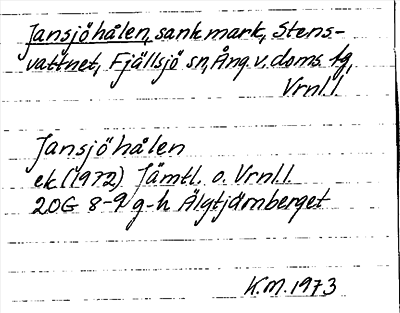 Jansjöhålen, sank mark, Stens-
vattnet, Fjällsjö sn, Ång. v. doms. tg,
Vrnl.l.
Jansjöhålen
ek (1972) Jämtl. o. Vrnl.l.
20G 8-9 g-h Älgtjärnberget
K.M. 1973